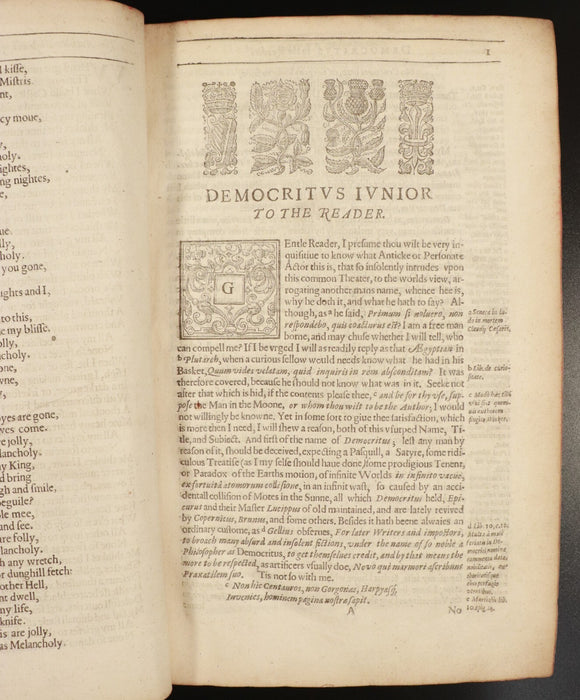 l kisse,
Mistris.
nt,
cy moue,
y,
holy.
ightes,
ng nightes,
e,
ue.
lly,
holy.
you gone,
ughts and I,
to this,
e my blisse.
olly,
ncholy.
one,
wne,
y,
oyes are gone,
ves come.
re jolly,
lancholy.
ny King,
nd bring
gh and smile,
beguile?
ble mee,
and see.
are folly,
elancholy.
h any wretch,
or dunghill fetch:
nother Hell,
nt dwell,
ny life,
knife.
is are jolly,
as Melancholy.
1
DEMOCRITVS IVNIOR
TO THE READER.
G
Entle Reader, I presume thou wilt be very in-
quisitiue to know what Anticke or Personate
Actor this is, that so insolently intrudes vpon
this common Theater, to the worlds view, ar-
rogating another mans name, whence hee is,
why he doth it, and what he hath to say? Al-
though, as a he said, Primum si noluero, non
respondebo, quis coacturus est? I am a free man
borne, and may chuse whether I will tell, who
can compell me? If I be vrged I will as readily reply as that Ægyptian in
b Plutarch, when a curious fellow would needs know what he had in his
Basket, Quum vides velatam, quid inquiris in rem absconditam? It was
therefore covered, because he should not know what was in it. Seeke not
after that which is hid, if the contents please thee, c and be for thy vse, sup-
pose the Man in the Moone, or whom thou wilt to be the Author; I would
not willingly be knowne. Yet in some sort to giue thee satisfaction, which
is more then I need, I will shew a reason, both of this vsurped Name, Ti-
tle, and Subiect. And first of the name of Democritus; lest any man by
reason of it, should be deceived, expecting a Pasquill, a Satyre, some ridi-
culous Treatise (as I my selfe should haue done) some prodigious Tenent,
or Paradox of the Earths motion, of infinite Worlds in infinito vacuo,
ex fortuitâ atomorum collisione, in an infinit wast, so caused by an acci-
dentall collision of Motes in the Sunne, all which Democritus held, Epi-
curus and their Master Lucippus of old maintained, and are lately revived
by Copernicus, Brunus, and some others. Besides it hath beene alwaies an
ordinary custome, as d Gellius obserues, For later Writers and impostors,
to broach many absurd and insolent fictions, vnder the name of so noble a
Philosopher as Democritus, to get themselues credit, and by that means the
more to be respected, as artificers vsually doe, Novo qui marmori ascribunt
Praxatilem suo. 'Tis not so with me.
e Non hic Centauros, non Gorgonas, Harpyasq;
Invenies, hominem pagina nostra sapit.
A
No
a Seneca in lu-
do in mortem
Claudij Cæsaris.
b Lib. de curio-
sitate.
d Lib. 10. c. 12.
e Martialis lib.
10. epig. 14.